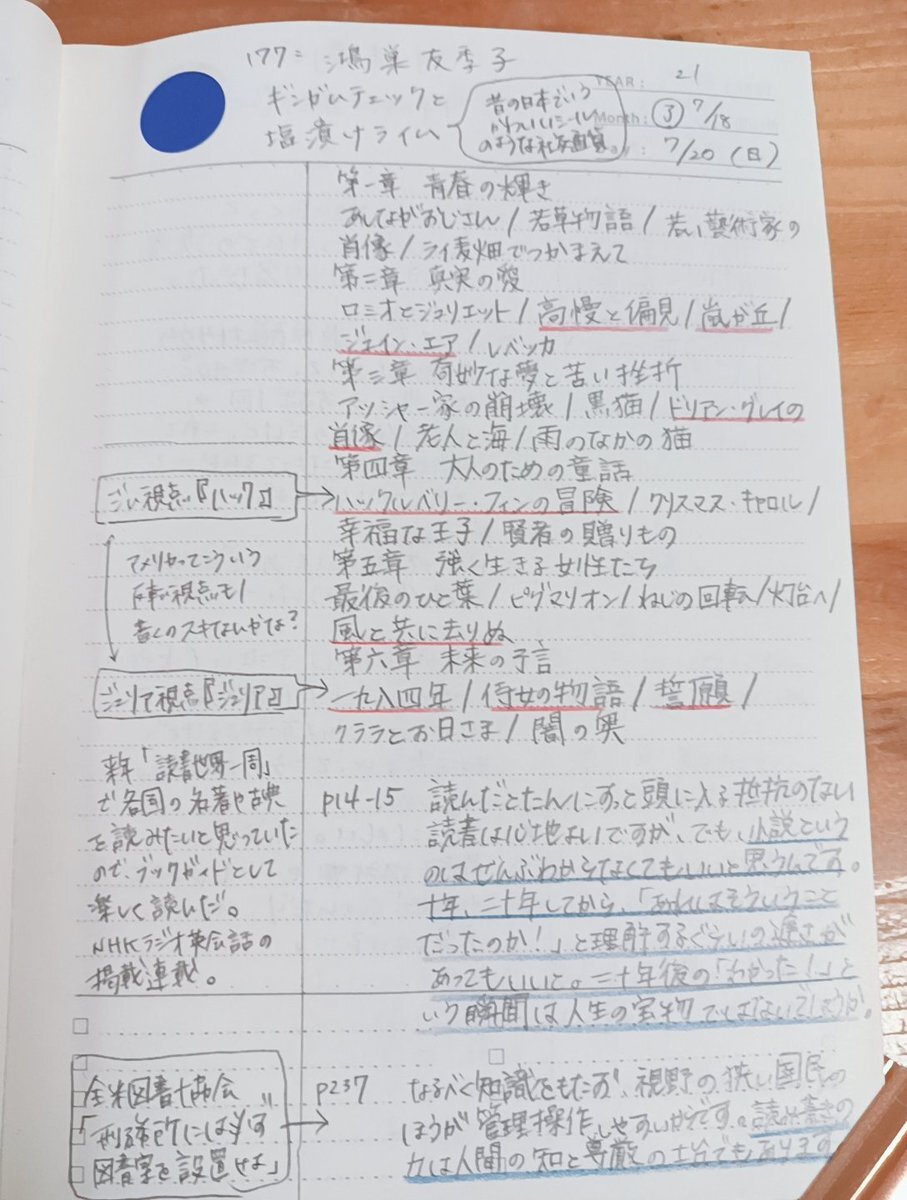 177= 鴻巣友季子
ギンガムチェックと
塩漬けライム
昔の日本でいう
かわいいシール
のような社交
YEAR: 21
Month: ③ 7/18
7/20 (日)
第一章 青春の輝き
あしながおじさん / 若草物語 / 若い藝術家の
肖像 / ライ麦畑でつかまえて
第二章 真実の愛
ロミオとジュリエット / 高慢と偏見 / 嵐が丘 /
ジェイン・エア / レベッカ
第三章 奇妙な夢と苦い挫折
アッシャー家の崩壊 / 黒猫 / ドリアン・グレイの
肖像 / 老人と海 / 雨のなかの猫
第四章 大人のための童話
ジム視点『 』
ハックルベリー・フィンの冒険 / クリスマス・キャロル /
幸福な王子 / 賢者の贈りもの
アメリカってこういう
視点モノ
書くのスキなんかな?
第五章 強く生きる女性たち
最後のひと葉 / ピグマリオン / ねじの回転 / 灯台へ /
風と共に去りぬ
第六章 未来の予言
ジュリア視点『ジュリア』
一九八四年 / 侍女の物語 / 誓願 /
クララとお日さま / 闇の奥
来年「読書世界一周」
で各国の名著や古典
を読みたいと思っていた
ので、ブックガイドとして
楽しく読んだ。
NHKラジオ英会話の
掲載連載。
p14-15 読んだとたんにすっと頭に入る抵抗のない
読書は心地よいですが、でも、小説という
のはぜんぶわからなくてもいいと思うんです。
十年、二十年してから、「あれはそういうこと
だったのか!」と理解するぐらいの遅さが
あってもいいと。二十年後の「わかった!」と
いう瞬間は人生の宝物ではないでしょうか。
全米図書館協会
「刑務所には必ず
図書室を設置せよ」
p237 なるべく知識をもたず、視野の狭い国民の
ほうが管理操作しやすいからです。読み書きの
力は人間の知と尊厳の土台でもあります。